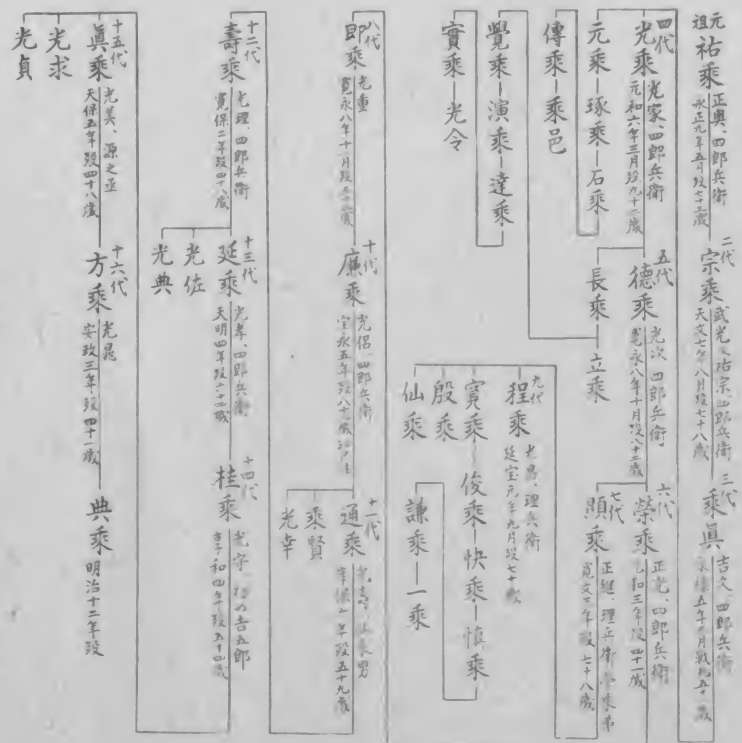 元祖
祐乘
正奥、四郎兵衛
永正九年五月歿七十三歲
二代
宗乘
武光 祐宗、四郎兵衛
天文七年八月歿七十八歲
三代
乘眞
吉久、四郎兵衛
五年三月戰死五十 歲
四代
光乘
光家、四郎兵衛
元和六年三月歿九十二歲
五代
德乘
光次、四郎兵衛
寛永八年十月歿八十二歲
長乘
立乘
六代
榮乘
正光、四郎兵衛
元和三年歿四十一歲
七代
顯乘
正繼、理兵衛 榮乘弟
寛文三年歿七十八歲
元乘
琢乘
石乘
傳乘
乘邑
覺乘
演乘
達乘
實乘
光令
九代
程乘
光昌、理兵衛
延宝元年九月歿七十歲
寛乘
俊乘
快乘
愼乘
殷乘
仙乘
謙乘
一乘
八代
即乘
光重
寛永八年十一月歿三十二歲
十代
廉乘
光侶、四郎兵衛
宝永五年歿八十一歲
十一代
通乘
光壽
享保六年歿五十九歲
乘賢
光幸
十二代
壽乘
光理、四郎兵衛
寛保二年歿四十八歲
十三代
延乘
光孝、四郎兵衛
天明四年歿六十四歲
光佐
光典
十四代
桂乘
光守、 吉五郎
和四年歿五十四歲
十五代
眞乘
光美、源之丞
天保五年歿四十八歲
光求
光貞
十六代
方乘
光晃
安政三年歿四十一歲
典乘
明治十二年歿